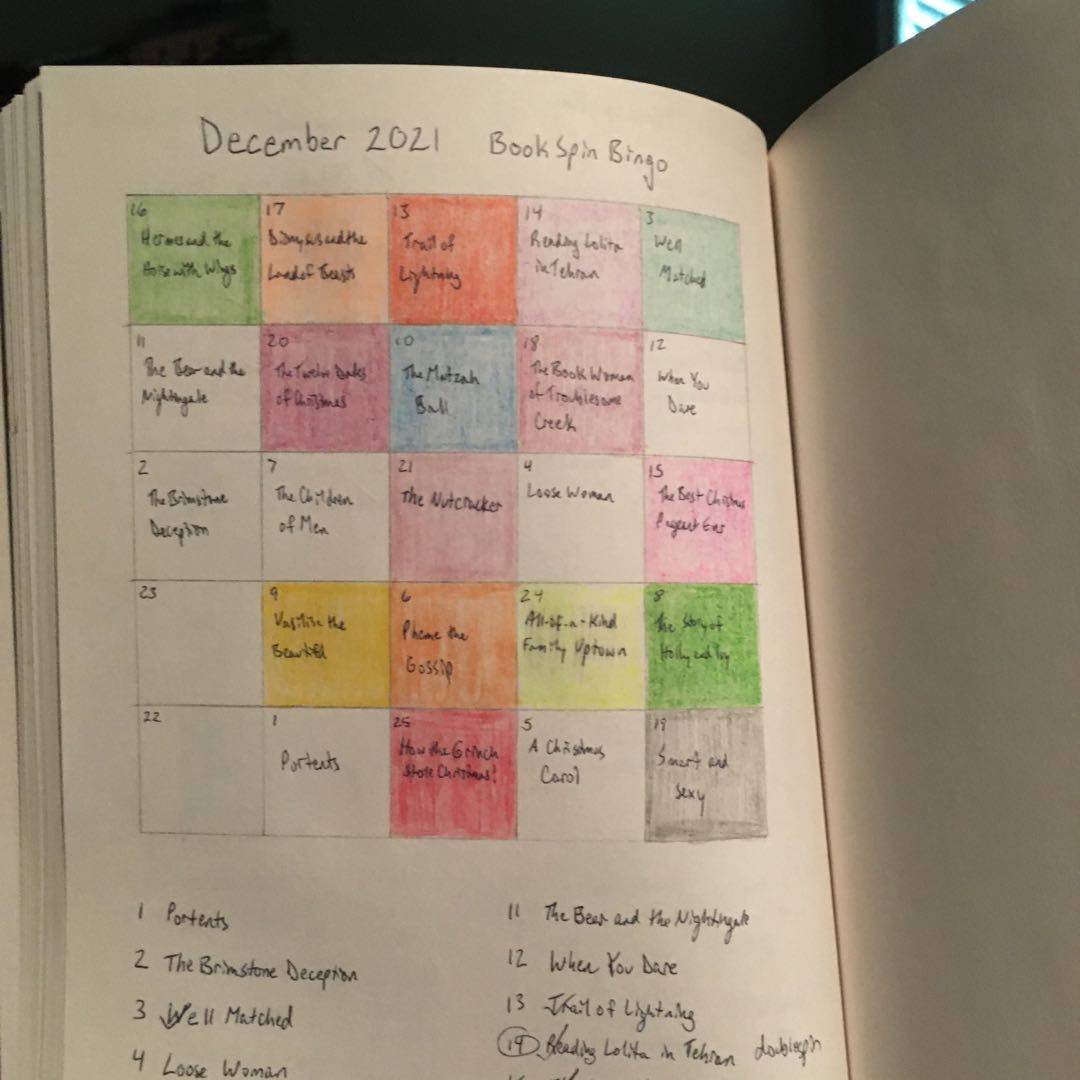 December 2021 BookSpin Bingo
16 17 13 14 3
Hermes and the
Horse with Wings
Dionysus and the
Land of Beasts
Trail of
Lightning
Reading Lolita
in Tehran
Well
Matched
11 20 10 18 12
The Bear and the
Nightingale
The Twelve Dates
of Christmas
The Matzah
Ball
The Book Woman
of Troublesome
Creek
When You
Dare
2 7 21 4 15
The Brimstone
Deception
The Children
of Men
The Nutcracker
Loose Woman
The Best Christmas
Pageant Ever
23 9 6 24 8
Vasilisa the
Beautiful
Pheme the
Gossip
All-of-a-Kind
Family Uptown
The Story of
Holly and Ivy
22 1 25 5 19
Portents
How the Grinch
Stole Christmas!
A Christmas
Carol
Smart and
Sexy
1 Portents
2 The Brimstone Deception
3 Well Matched
4 Loose Woman
11 The Bear and the Nightingale
12 When You Dare
13 Trail of Lightning
14 Reading Lolita in Tehran doublespin